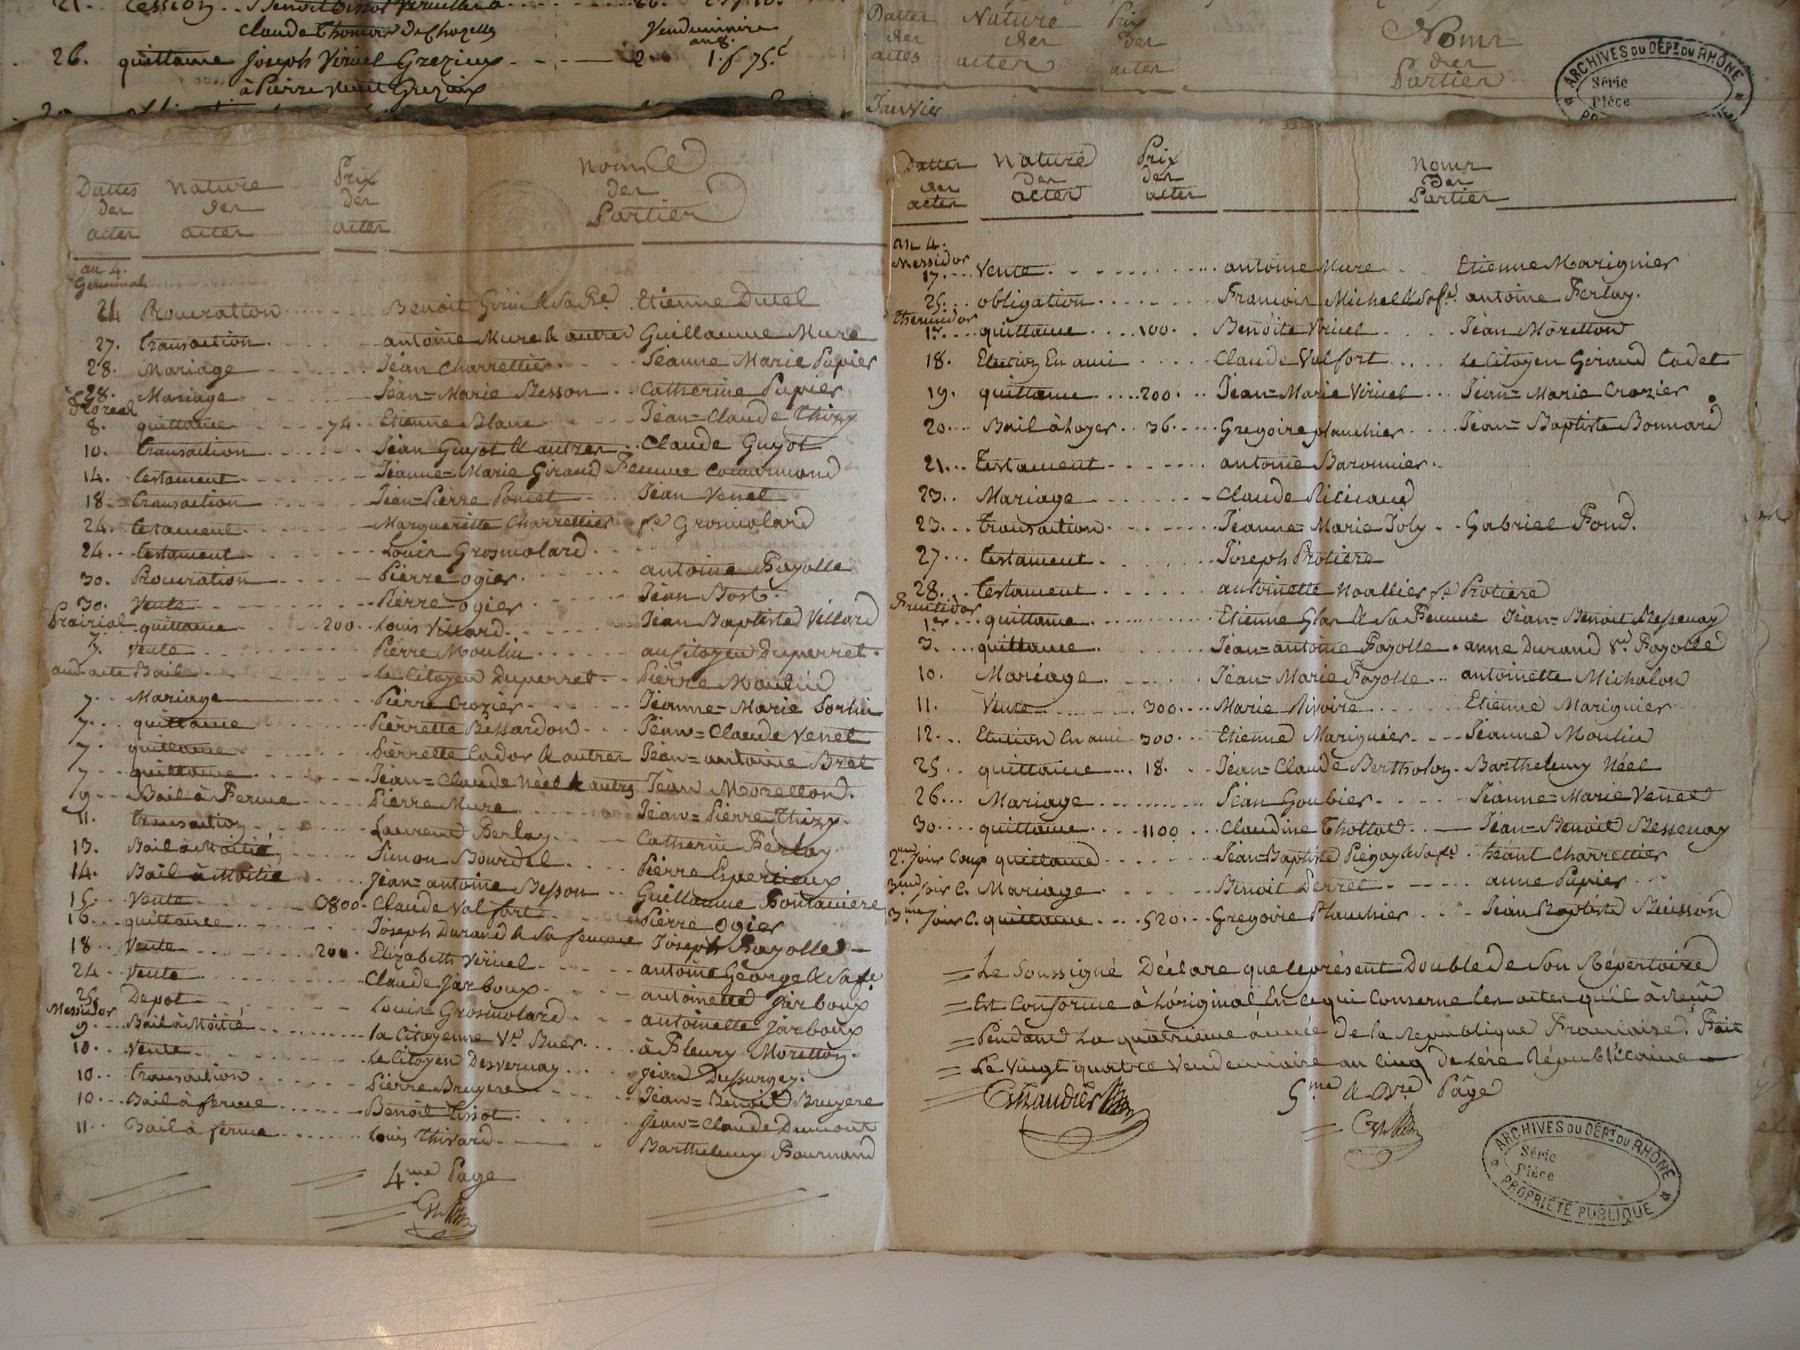 21. Cession
claude Thomas de Chazelles Vendemiaire
an 8.
26. quittance Joseph Viricel Grezieux 2 1.f 75.c
à Pierre Grezieux
Dattes Nature Prix Noms
des des des des
actes actes actes Parties
Janvier
ARCHIVES DU DÉPT. DU RHÔNE
Série
Pièce
Dattes Nature Prix Noms
des des des des
actes actes actes Parties
an 4.
Germinal
24 Procuration Benoit Etienne Ducel
27. transaction antoine Mure & autres Guillaume Mure
28. Mariage Jean Charrettier Jeanne Marie Pupier
28. Mariage Jean=Marie Besson Catherine Pupier
floreal
8. quittance 74. Etienne Blanc Jean=Claude Thizy
10. transaction Jean Guyot & autres Claude Guyot
14. testament Jeanne=Marie Giraud femme Coucurmond
18 transaction Jean=Pierre Poncet Jean Venet
24. testament Marguerite Charrettier fe. Grosmolard
24. testament Louis Grosmolard
30. Procuration Pierre ogier antoine Fayolle
30. Vente Pierre ogier Jean Bost
Prairial quittance 200 Louis Villard Jean Baptiste Villard
3. Vente Pierre Moulin au Citoyen Duperret
aud. acte Bail le Citoyen Duperret Pierre Moulin
7. Mariage Pierre Crozier Jeanne=Marie Sorlin
7. quittance Pierrette Bessardon Jean=Claude Venet
7. quittance Pierrette Cador & autres Jean=antoine Bret
7. quittance Jean=Claude Néel & autres Jean Moretton.
9. Bail à Ferme Pierre Mure Jean=Pierre Thizy.
11. transaction Laurent Ferlay Catherine Ferlay.
13. Bail à Moitié Simon Bourdel Pierre Espercieux
14. Bail à Moitié Jean=antoine Besson Guillaume Fontaniere
15. Vente 0800 Claude Valfort Pierre Ogier
16. quittance Joseph Durand & Sa femme Joseph Fayolle
18. Vente 200 Elizabeth Viricel antoine George & Sa fe.
24. Vente Claude Jarboux antoinette Jarboux
25. Depot Louis Grosmolard antoinette Jarboux
Messidor
9. Bail à Moitié la Citoyenne Ve. Buer à Fleury Moretton.
10. Vente le Citoyen Desvernay Jean Dussurgey.
10. transaction Pierre Bruyere Jean=Benoit Bruyere
10. Bail à ferme Benoit Tissot Jean=Claude Dumont
11. Bail à ferme Louis Thivard Barthelemy Bournand
4.me Page
Dattes Nature Prix Noms
des des des des
actes actes actes Parties
an 4.
Messidor
17. Vente antoine Mure Etienne Marignier
25. obligation Francois Michel & Sa fe. antoine Ferlay.
thermidor
17. quittance 100. Benoite Viricel Jean Moretton
18. Election En ami Claude Valfort le Citoyen Giraud Cadet
19. quittance 200. Jean=Marie Viricel Jean=Marie Crozier
20. Bail à Loyer 36. Gregoire plauchier Jean=Baptiste Bonnard
21. testament antoine Baronnier.
23. Mariage Claude
23. transaction Jeanne=Marie Joly Gabriel Fond.
27. testament Joseph Protiere
28. testament antoinette Noallier fe. Protiere
Fructidor
1er. quittance Etienne Glas & Sa Femme Jean=Benoit Bessenay
3. quittance Jean=antoine Fayolle anne Durand Ve. Fayolle
10. Mariage Jean=Marie Fayolle antoinette Michalon
11. Vente 300 Marie Rivoire Etienne Marignier
12. Election En ami 300 Etienne Marignier Jeanne Moulin
25. quittance 18. Jean=Claude Bertholon Barthelemy Néel
26. Mariage Jean Goubier Jeanne=Marie Venet
30. quittance 1100 Claudine Thollot Jean=Benoit Bessenay
2.me Jour Comp quittance Jean Baptiste Piegay & Sa fe. Charrettier
3me Jour C. Mariage Benoit Perret anne Pupier
3.me Jour C. quittance 520 Gregoire Plauchier Jean Baptiste Buisson
= Le Soussigné Déclare que le présent Double de Son Répertoire
= Est Conforme à L'original En ce qui Conserne les actes qu'il à Reçu
= Pendant La quatrieme année de la République Francaise. Fait
= Le Vingt quatre Vendemiaire an Cinq de L'ère Républicaine
5me. & Dre. Page
ARCHIVES DU DÉPT. DU RHÔNE
Série
Pièce
PROPRIÉTÉ PUBLIQUE